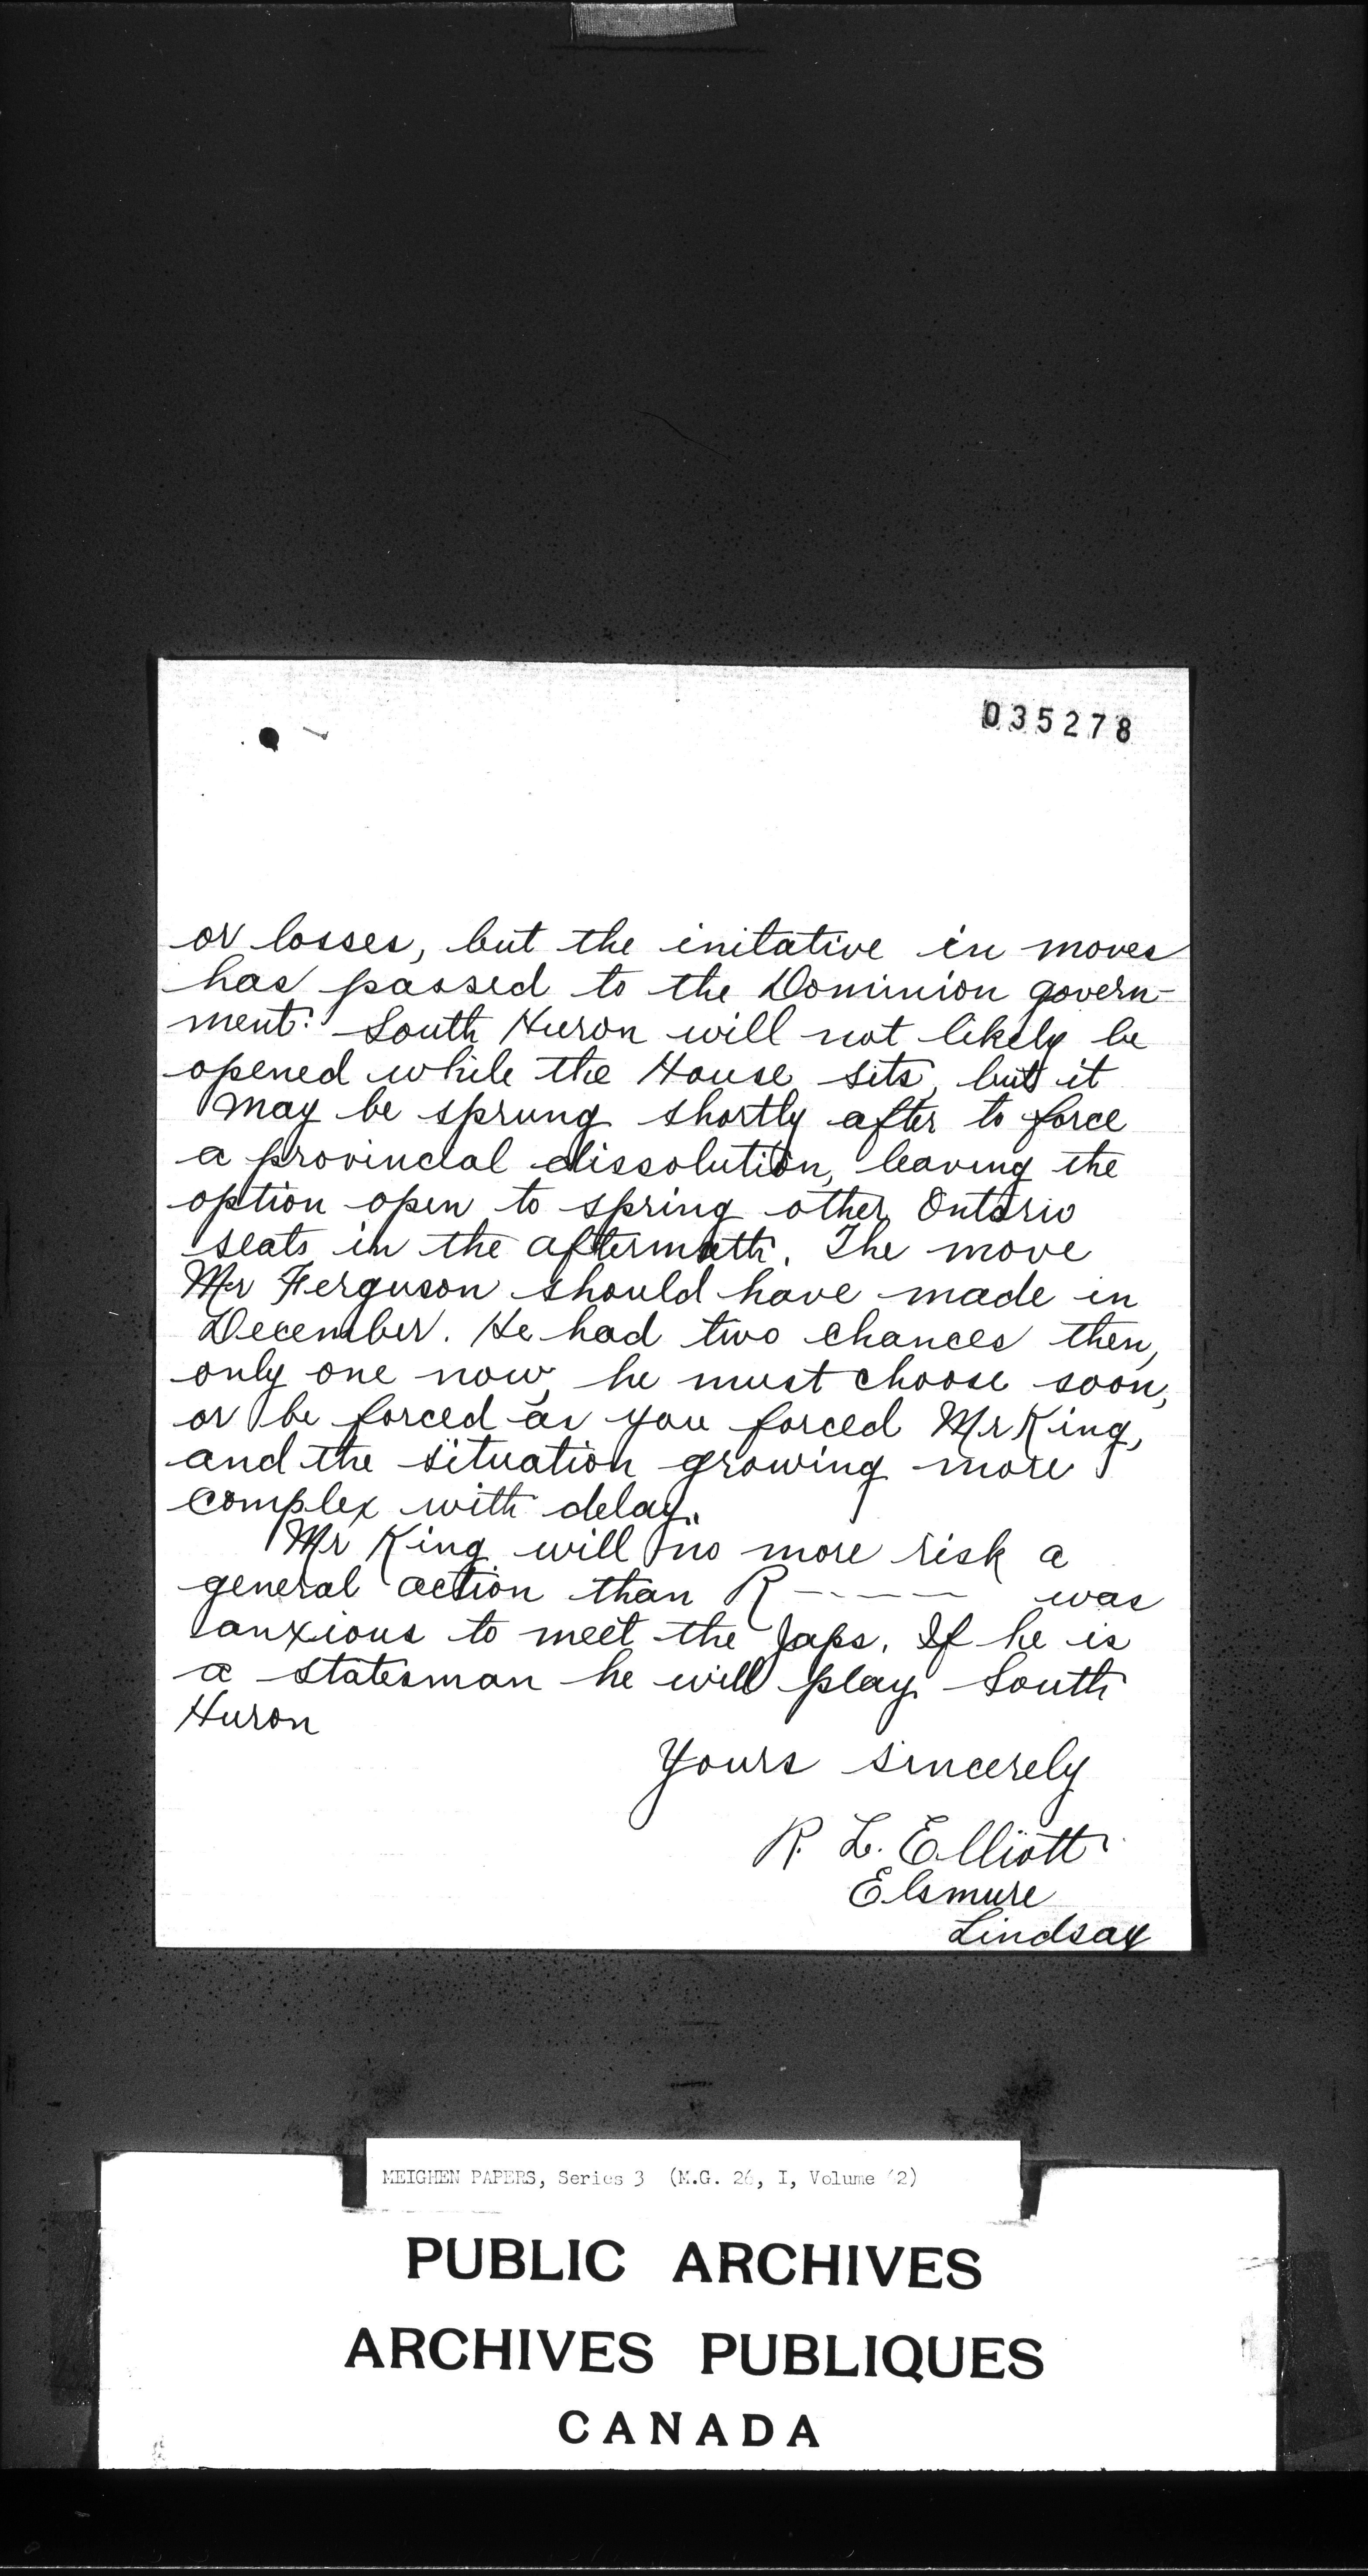 035278
or losses, but the initative in moves
has passed to the Dominion govern-
ment. South Huron will not likely be
opened while the House sits, but it
may be sprung shortly after to force
a provincial dissolution, leaving the
option open to spring other Ontario
seats in the aftermath. The move
Mr Ferguson should have made in
December. He had two chances then,
only one now, he must choose soon,
or be forced as you forced Mr King,
and the situation growing more
complex with delay.
Mr King will no more risk a
general action than R----- was
anxious to meet the Japs. If he is
a statesman he will play South
Huron
Yours sincerely
R. L. Elliott
Elsmure
Lindsay
MEIGHEN PAPERS, Series 3 (M.G. 26, I, Volume 2)
PUBLIC ARCHIVES
ARCHIVES PUBLIQUES
CANADA